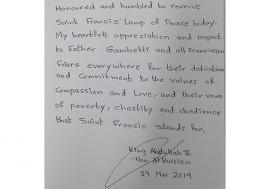 Honoured and humbled to receive
Saint Francis' Lamp of Peace today.
My heartfelt appreciation and respect
to Father Gambetti and all Franciscan
Friars everywhere for their dedication
and commitment to the values of
Compassion and Love, and their vows
of poverty, chastity and obedience
that Saint Francis stands for.
King Abdullah II
Ibn Al Hussien
29 Mar 2019